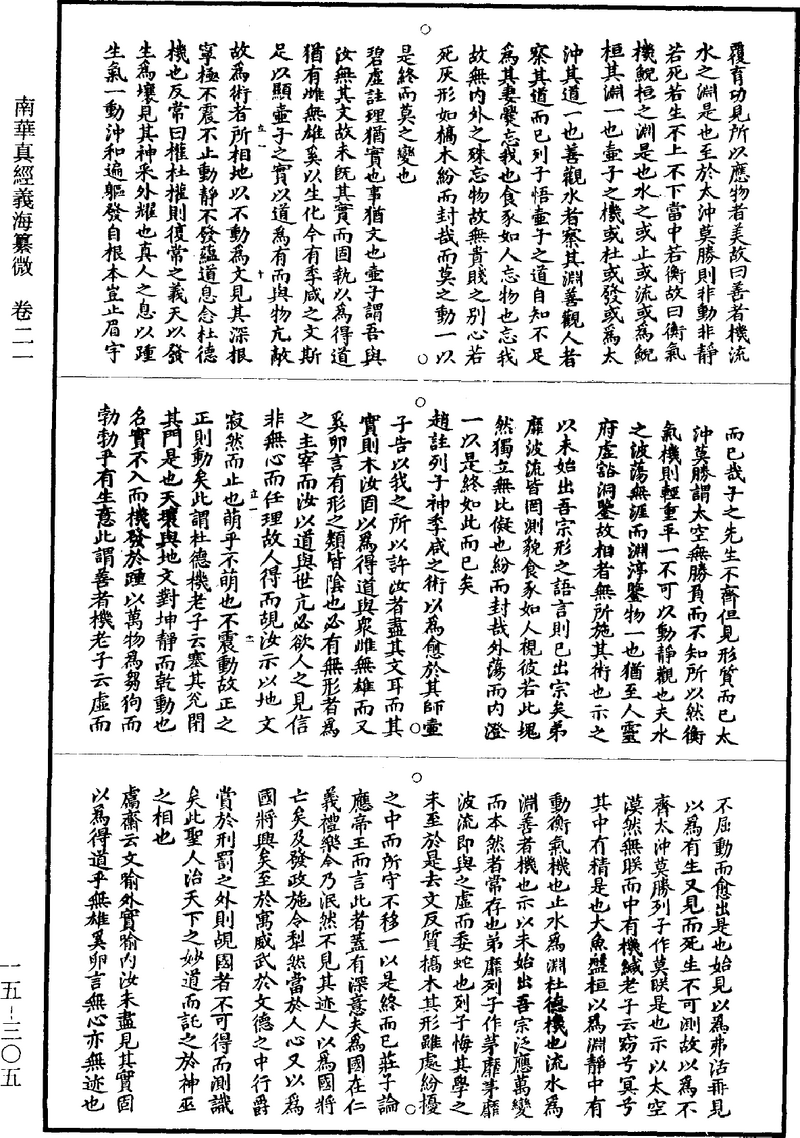 覆育功見所以應物者美故曰善者機流
水之淵是也至於太沖莫勝則非動非靜
若死若生不上不下當中若衡故曰衡氣
機鯢桓之淵是也水之或止或流或為鯢
桓其淵一也壺子之機或杜或發或為太
沖其道一也善觀水者察其淵善觀人者
察其道而已列子悟壺子之道自知不足
為其妻爨忘我也食豕如人忘物也忘我
故無內外之殊忘物故無貴賤之別心若
死灰形如槁木紛而封哉而莫之動一以
是終而莫之變也
碧虛註理猶實也事猶文也壺子謂吾與
汝無其文故未既其實而固執以為得道
猶有雌無雄奚以生化今有季咸之文斯
足以顯壺子之實以道為有而與物亢敵
故為術者所相地以不動為文見其深根
寧極不震不止動靜不發蘊道息念杜德
機也反常曰權杜權則復常之義天以發
生為壤見其神采外耀也真人之息以踵
生氣一動沖和遍軀發自根本豈止眉宇
而已哉子之先生不齊但見形質而已太
沖莫勝謂太空無勝負而不知所以然衡
氣機則輕重平一不可以動靜觀也夫水
之波蕩無涯而淵渟鑒物一也猶至人靈
府虛谿洞鑒故相者無所施其術也示之
以未始出吾宗形之語言則已出宗矣弟
靡波流皆罔測貌食豕如人視彼若此塊
然獨立無比儗也紛而封哉外蕩而內澄
一以是終如此而已矣
趙註列子神季咸之術以為愈於其師壺
子告以我之所以許汝者盡其文耳而其
實則未汝固以為得道與眾雌無雄而又
奚卵言有形之類皆陰也必有無形者為
之主宰而汝以道與世亢必欲人之見信
非無心而任理故人得而覘汝示以地文
寂然而止也萌乎不萌也不震動故正之
正則動矣此謂杜德機老子云塞其兌閉
其門是也天壤與地文對坤靜而乾動也
名實不入而機發於踵以萬物為芻狗而
勃勃乎有生意此謂善者機老子云虛而
不屈動而愈出是也始見以為弗活再見
以為有生又見而死生不可測故以為不
齊太沖莫勝列子作莫眹是也示以太空
漠然無眹而中有機緘老子云窈兮冥兮
其中有精是也大魚盤桓以為淵靜中有
動衡氣機也止水為淵杜德機也流水為
淵善者機也示以未始出吾宗泛應萬變
而本然者常存也弟靡列子作茅靡茅靡
波流即與之虛而委蛇也列子悔其學之
未至於是去文反質槁木其形雖處紛擾
之中而所守不移一以是終而已莊子論
應帝王而言此者蓋有深意夫為國在仁
義禮樂今乃泯然不見其迹人以為國將
亡矣及發政施令犁然當於人心又以為
國將興矣至於寓威武於文德之中行爵
賞於刑罰之外則覘國者不可得而測識
矣此聖人治天下之妙道而託之於神巫
之相也
鬳齋云文喻外實喻內汝未盡見其實固
以為得道乎無雄奚卵言無心亦無迹也
南華真經義海纂微　卷二一
一五-三〇五